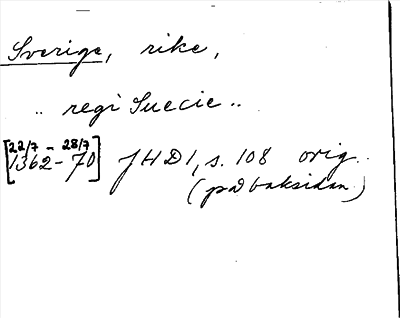 Sverige, rike,
.. regi Suecie ..
22/7 - 28/7
[1362-70] JHD 1, s. 108 orig..
(på baksidan)